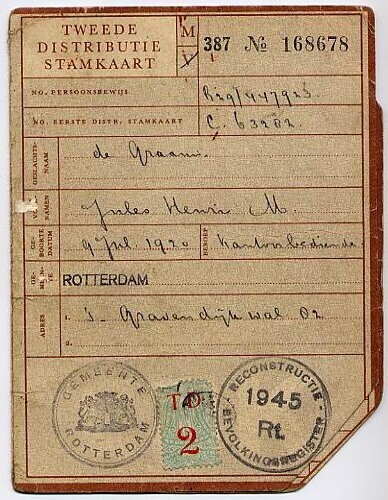 TWEEDE
DISTRIBUTIE
STAMKAART
M
V
387 № 168678
NO. PERSOONSBEWIJS
R29/447923
NO. EERSTE DISTR. STAMKAART
C. 63202.
GESLACHTS-NAAM
de Graam.
VOORNAMEN
Jules Henri M.
GEBOORTEDATUM
9 Jul 1920
BEROEP
Kantoorbediende
GEMEENTE
ROTTERDAM
ADRES
1. 's Gravendijkwal 82
2.
GEMEENTE
ROTTERDAM
T.D.
2
RECONSTRUCTIE
1945
Rt.
BEVOLKINGSREGISTER